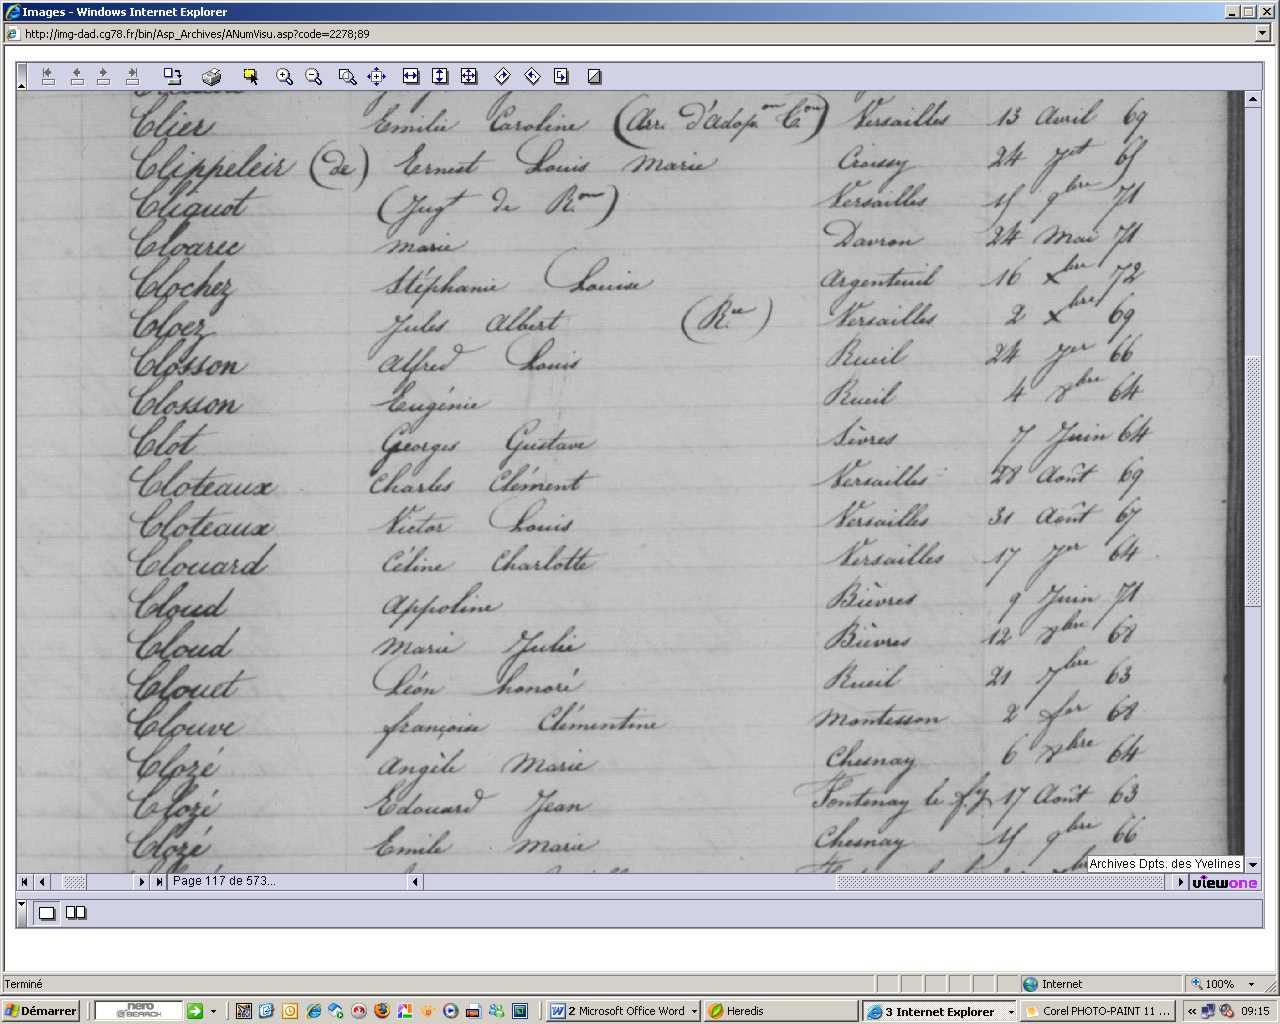 Images - Windows Internet Explorer
http://img-dad.cg78.fr/bin/Asp_Archives/ANumVisu.asp?code=2278;89
Clier Emilie Caroline (Arr. d'adop.on C.on) Versailles 13 Avril 69
Clippeleir (de) Ernest Louis Marie Croissy 24 Jet 65
Cliquot (Jugt de R.on) Versailles 15 9bre 71
Cloarec Marie Davron 24 Mai 71
Clochez Stéphanie Louise Argenteuil 16 xbre 72
Cloez Jules Albert (R.ue) Versailles 2 xbre 69
Closson Alfred Louis Rueil 24 Jer 66
Closson Eugénie Rueil 4 8bre 64
Clot Georges Gustave Sèvres 7 Juin 64
Cloteaux Charles Clément Versailles 28 Août 69
Cloteaux Victor Louis Versailles 31 Août 67
Clouard Céline Charlotte Versailles 17 Jer 64
Cloud Appoline Bièvres 9 Juin 71
Cloud Marie Julie Bièvres 12 8bre 68
Clouet Léon honoré Rueil 21 7bre 63
Clouve françoise Clémentine Montesson 2 fer 68
Clozé Angèle Marie Chesnay 6 8bre 64
Clozé Edouard Jean Fontenay le fy 17 Août 63
Clozé Emile Marie Chesnay 15 9bre 66
Archives Dpts. des Yvelines
Page 117 de 573...
viewone
Terminé
Internet
100%
Démarrer
nero
SEARCH
2 Microsoft Office Word
Heredis
3 Internet Explorer
Corel PHOTO-PAINT 11 ...
09:15